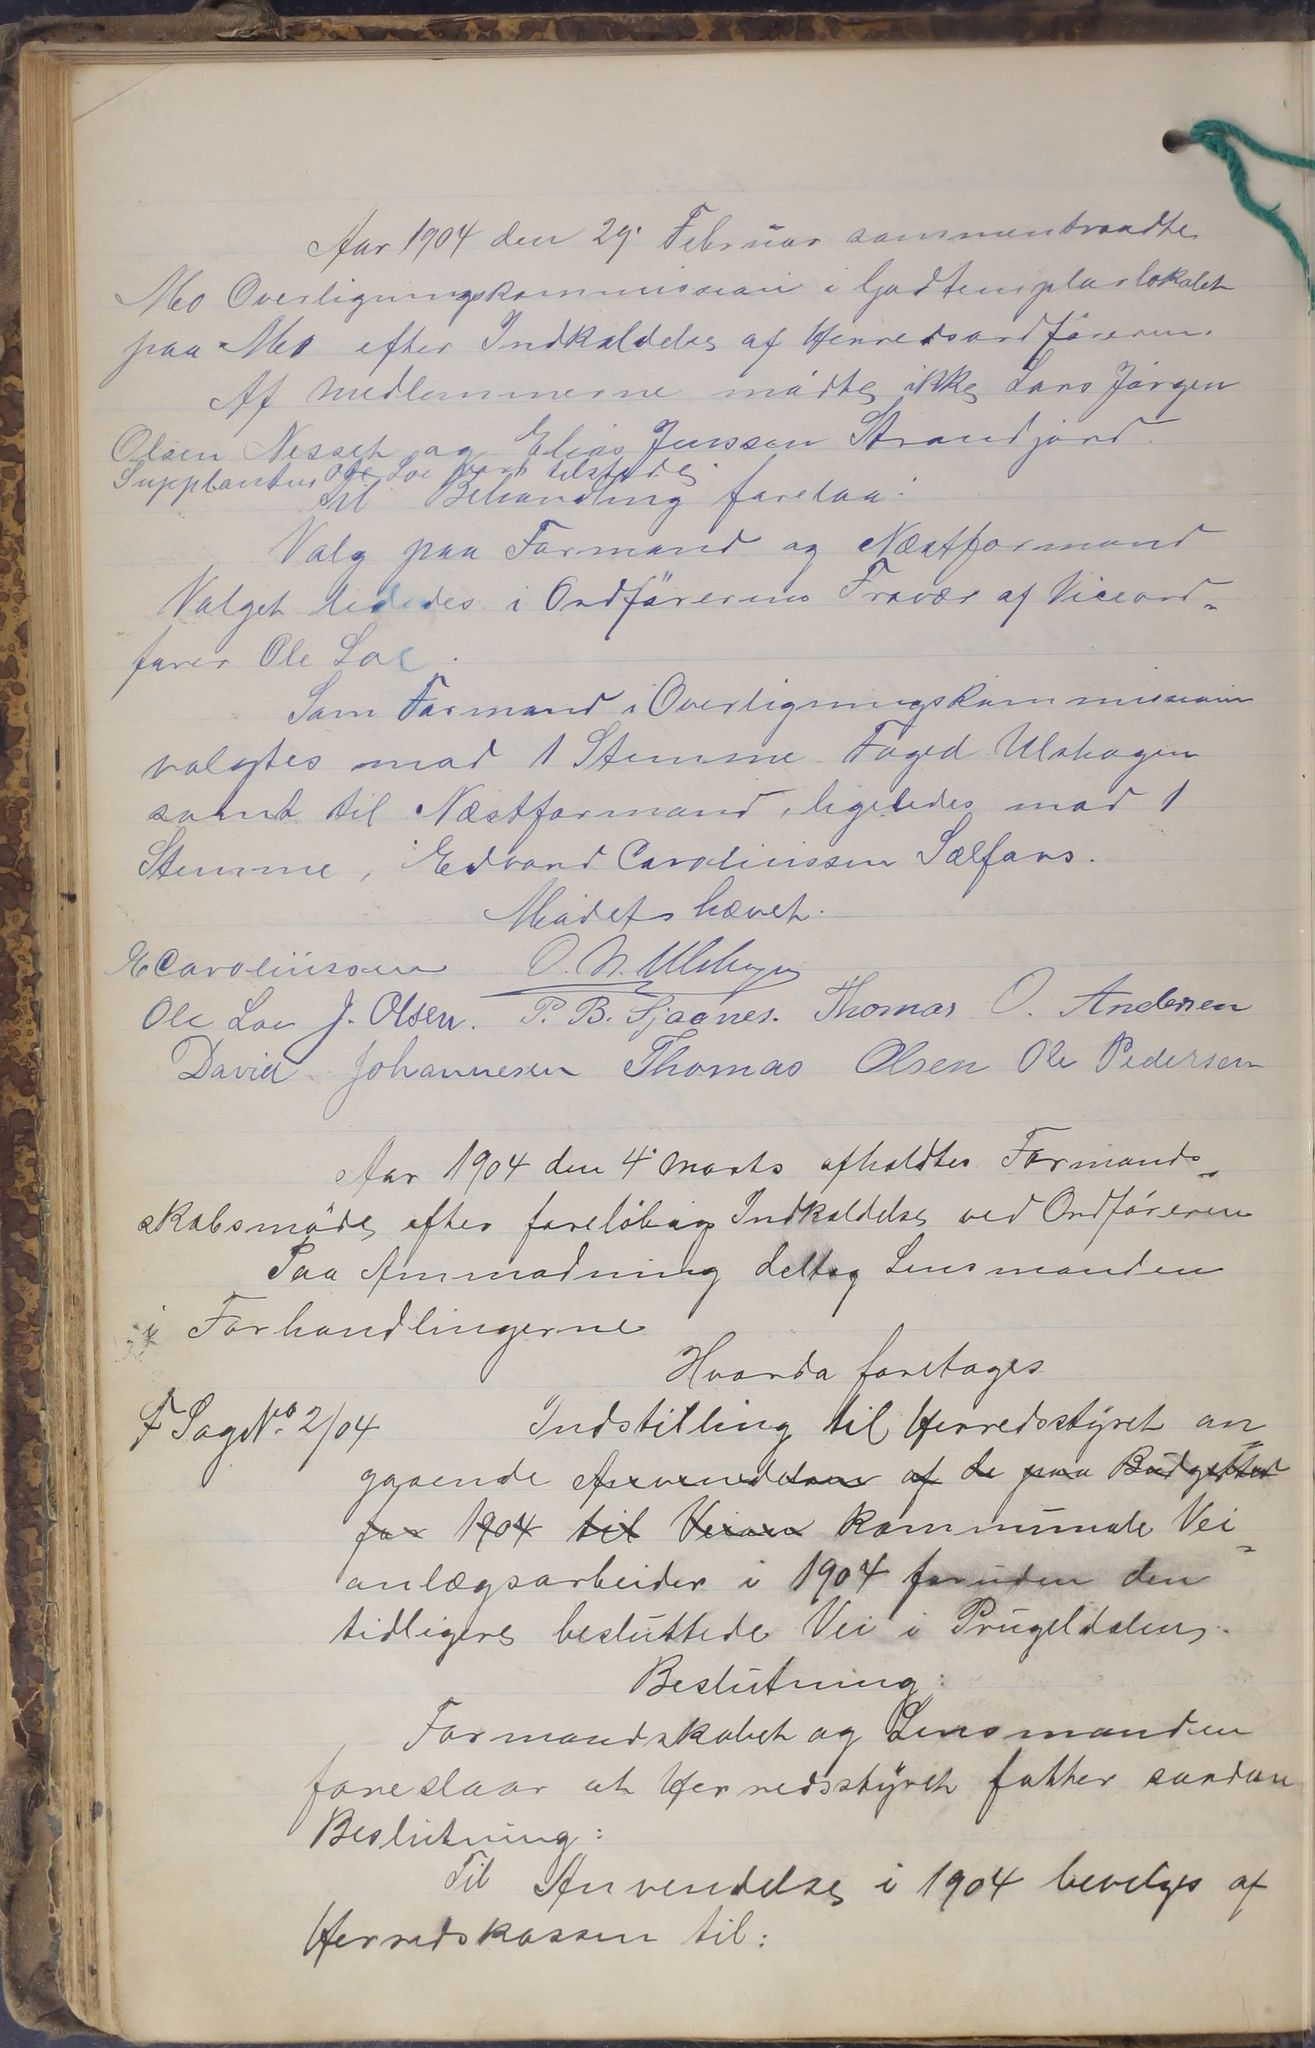 Aar 1904 den 29. Februar sammentraadte
Mo Overligningskommission i Godtemplarlokalet
paa Mo efter Indkaldelse af Herredsordføreren.
Af Medlemmerne mødte ikke Lars Jørgen
Olsen Nesset og Elias Jenssen Strandjord.
Supplanten Ole Loe var tilstede
Til Behandling forelaa:
Valg paa Formand og Næstformand
Valget lededes i Ordførerens Fravær af Viceord-
fører Ole Loe.
Som Formand i Overligningskommissionen
valgtes mod 1 Stemme Foged Ulshagen
samt til Næstformand, ligeledes mod 1
Stemme, Edvard Caroliussen Selfors.
Mødet hævet.
E Caroliussen O. N. Ulshagen
Ole Loe J. Olsen. P. B. Sjaanes. Thomas O. Andersen
David Johannesen Thomas Olsen Ole Pedersen
Aar 1904 den 4. Marts afholdtes Formand-
skabsmøde efter foreløbig Indkaldelse ved Ordføreren
Paa Anmodning deltog Lensmanden
i Forhandlingerne
Hvorda foretoges
F Sag No. 2/04 Indstilling til Herredsstyret an-
gaaende Anvendelsen af de paa Budgettet
for 1904 til Veian kommunale Vei-
anlægsarbeider i 1904 foruden den
tidligere besluttede Vei i Prugeldalen.
Beslutning:
Formandskabet og Lensmanden
foreslaar at Herredsstyret fatter saadan
Beslutning:
Til Anvendelse i 1904 bevilges af
Herredskassen til: